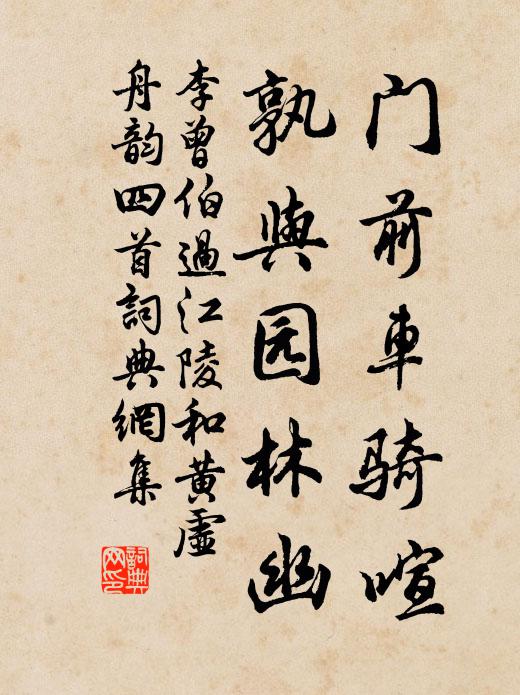 门前車骑喧
孰與园林幽
李曾伯過江陵和黄虚
舟韵四首詞典網集
詞典
网印